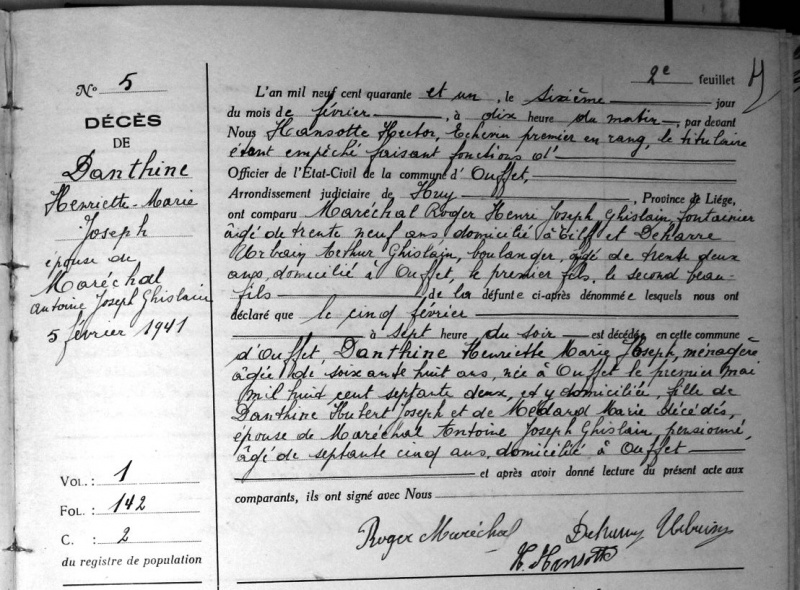 2e feuillet
No 5
DÉCÈS
DE
Danthine
Henriette-Marie
Joseph
épouse de
Maréchal
Antoine Joseph Ghislain
5 février 1941
VOL. : 1
FOL. : 142
C. : 2
du registre de population
L'an mil neuf cent quarante et un, le sixième jour
du mois de février, à dix heure du matin, par devant
Nous Hansotte Hector, Echevin premier en rang, le titulaire
étant empêché faisant fonctions d'
Officier de l'État-Civil de la commune d'Ouffet,
Arrondissement judiciaire de Huy, Province de Liége,
ont comparu Maréchal Roger Henri Joseph Ghislain, fontainier
âgé de trente neuf ans domicilié à Tilff et Deharre
Urbain Arthur Ghislain, boulanger, âgé de trente deux
ans, domicilié à Ouffet, le premier fils, le second beau-
fils de la défunte ci-après dénommée lesquels nous ont
déclaré que le cinq février
à sept heure du soir est décédée en cette commune
d'Ouffet, Danthine Henriette Marie Joseph, ménagère
âgée de soixante huit ans, née à Ouffet le premier mai
mil huit cent septante deux, et y domiciliée, fille de
Danthine Hubert Joseph et de Médard Marie décédés,
épouse de Maréchal Antoine Joseph Ghislain, pensionné,
âgé de septante cinq ans, domicilié à Ouffet
et après avoir donné lecture du présent acte aux
comparants, ils ont signé avec Nous
Roger Maréchal
H. Hansotte